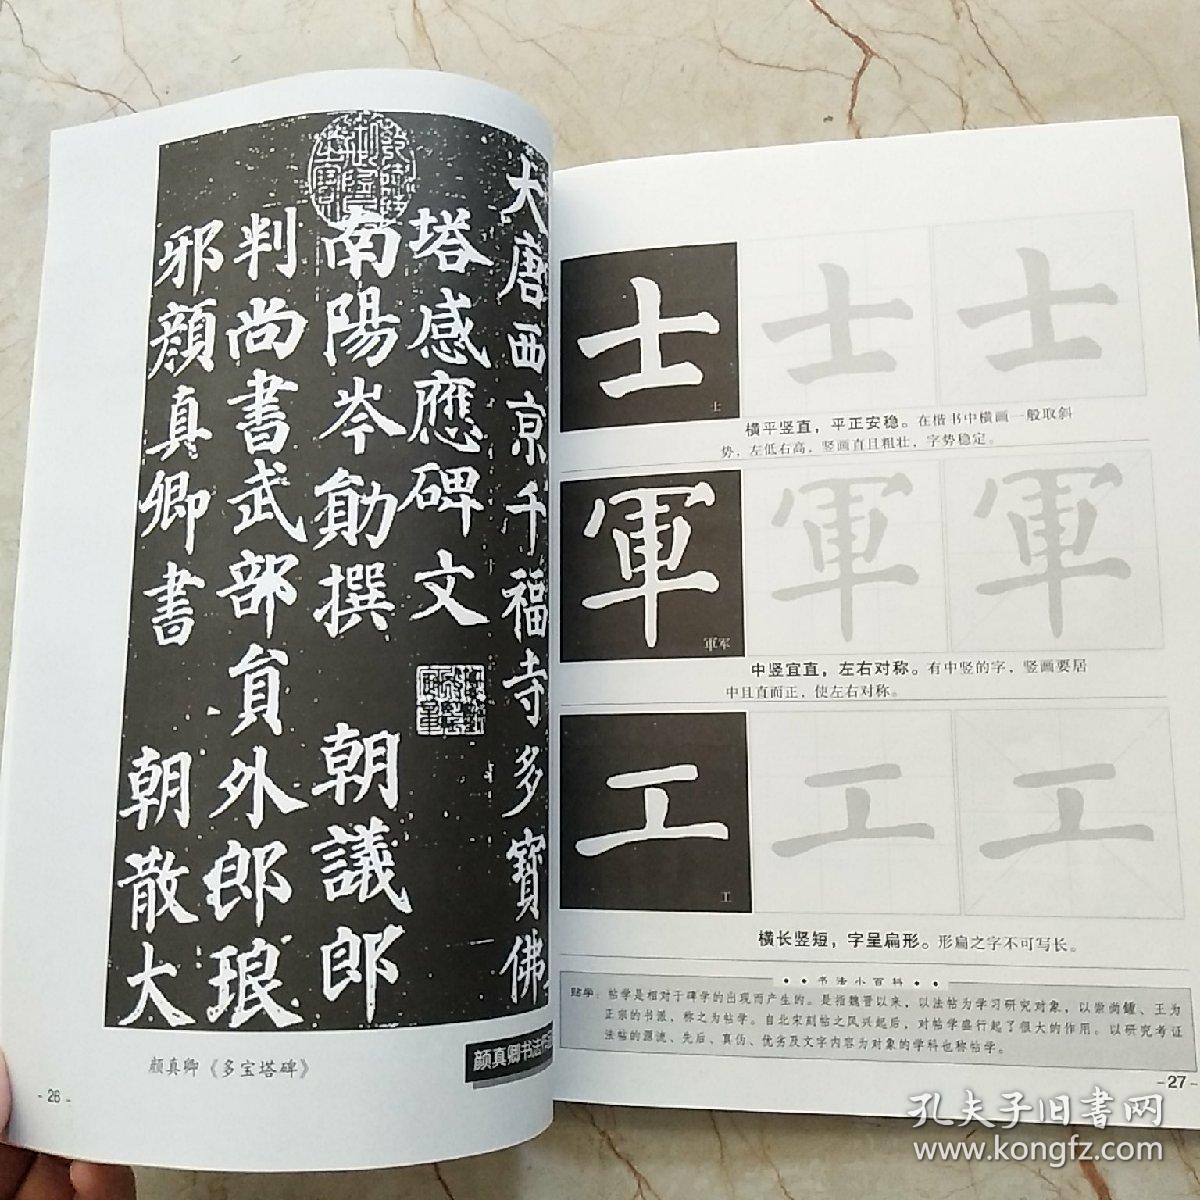 大唐西京千福寺多寶佛
塔感應碑文
南陽岑勛撰 朝議郎
判尚書武部員外郎琅
邪顏真卿書 朝散大
颜真卿《多宝塔碑》
颜真卿书法
- 26 -
士 士 士
士
横平竖直，平正安稳。在楷书中横画一般取斜
势，左低右高，竖画直且粗壮，字势稳定。
軍 軍 軍
軍军
中竖宜直，左右对称。有中竖的字，竖画要居
中且直而正，使左右对称。
工 工 工
工
横长竖短，字呈扁形。形扁之字不可写长。
••书法小百科••
帖学：帖学是相对于碑学的出现而产生的。是指魏晋以来，以法帖为学习研究对象，以崇尚鍾、王为
正宗的书派，称之为帖学。自北宋刻帖之风兴起后，对帖学盛行起了很大的作用。以研究考证
法帖的源流、先后、真伪、优劣及文字内容为对象的学科也称帖学。
- 27 -
孔夫子旧書网
www.kongfz.com